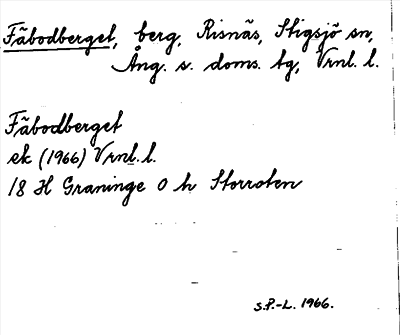 Fäbodberget, berg, Risnäs, Stigsjö sn,
Ång. s. doms. tg, Vrnl. l.
Fäbodberget
ek (1966) Vrnl. l.
18 H Graninge 0 h Storroten
S.P.-L. 1966.